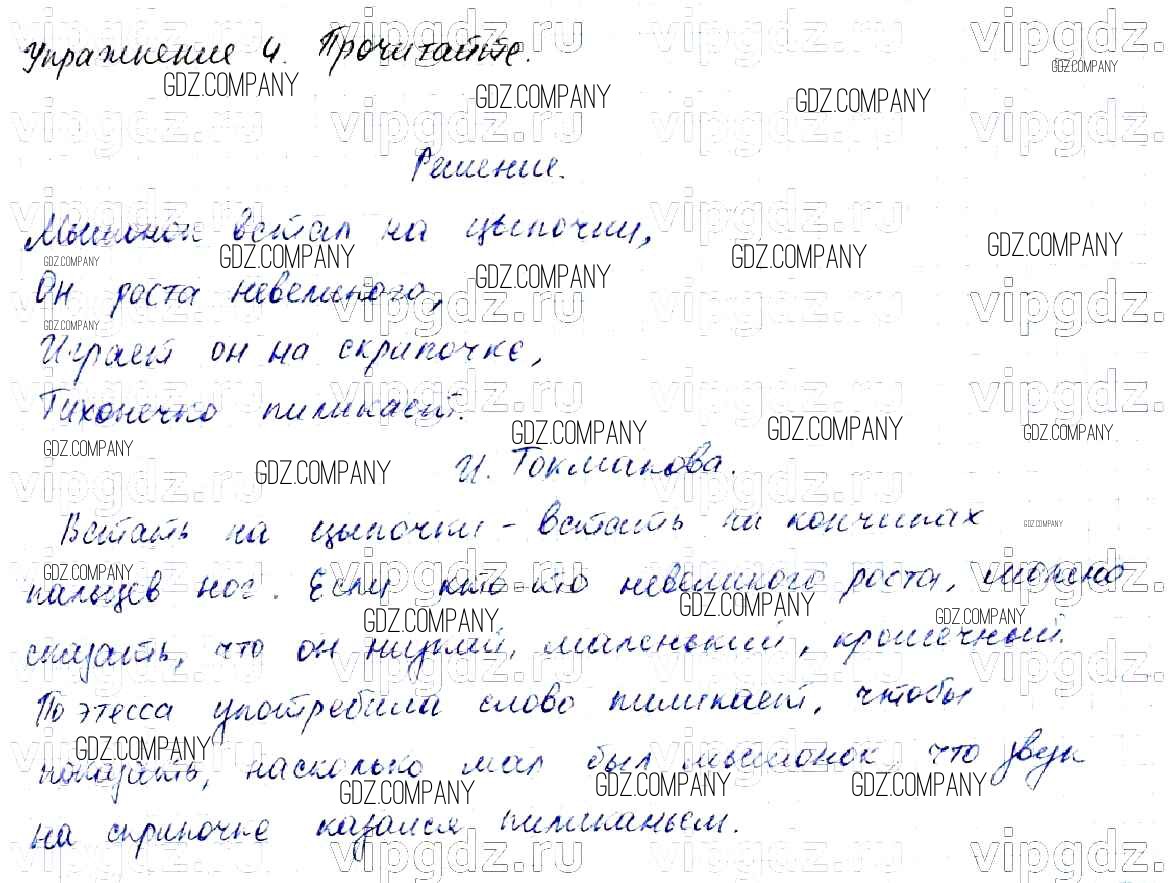 Упражнение 4. Прочитайте.
Решение.
Мышонок встал на цыпочки,
Он роста невеликого,
Играет он на скрипочке,
Тихонечко пиликает.
И. Токмакова.
Встать на цыпочки - встать на кончиках
пальцев ног. Если кто-то невеликого роста, можно
сказать, что он низкий, маленький, крошечный.
Поэтесса употребила слово пиликает, чтобы
показать, насколько мал был мышонок, что звук
на скрипочке казался пиликаньем.
GDZ.COMPANY
vipgdz.ru